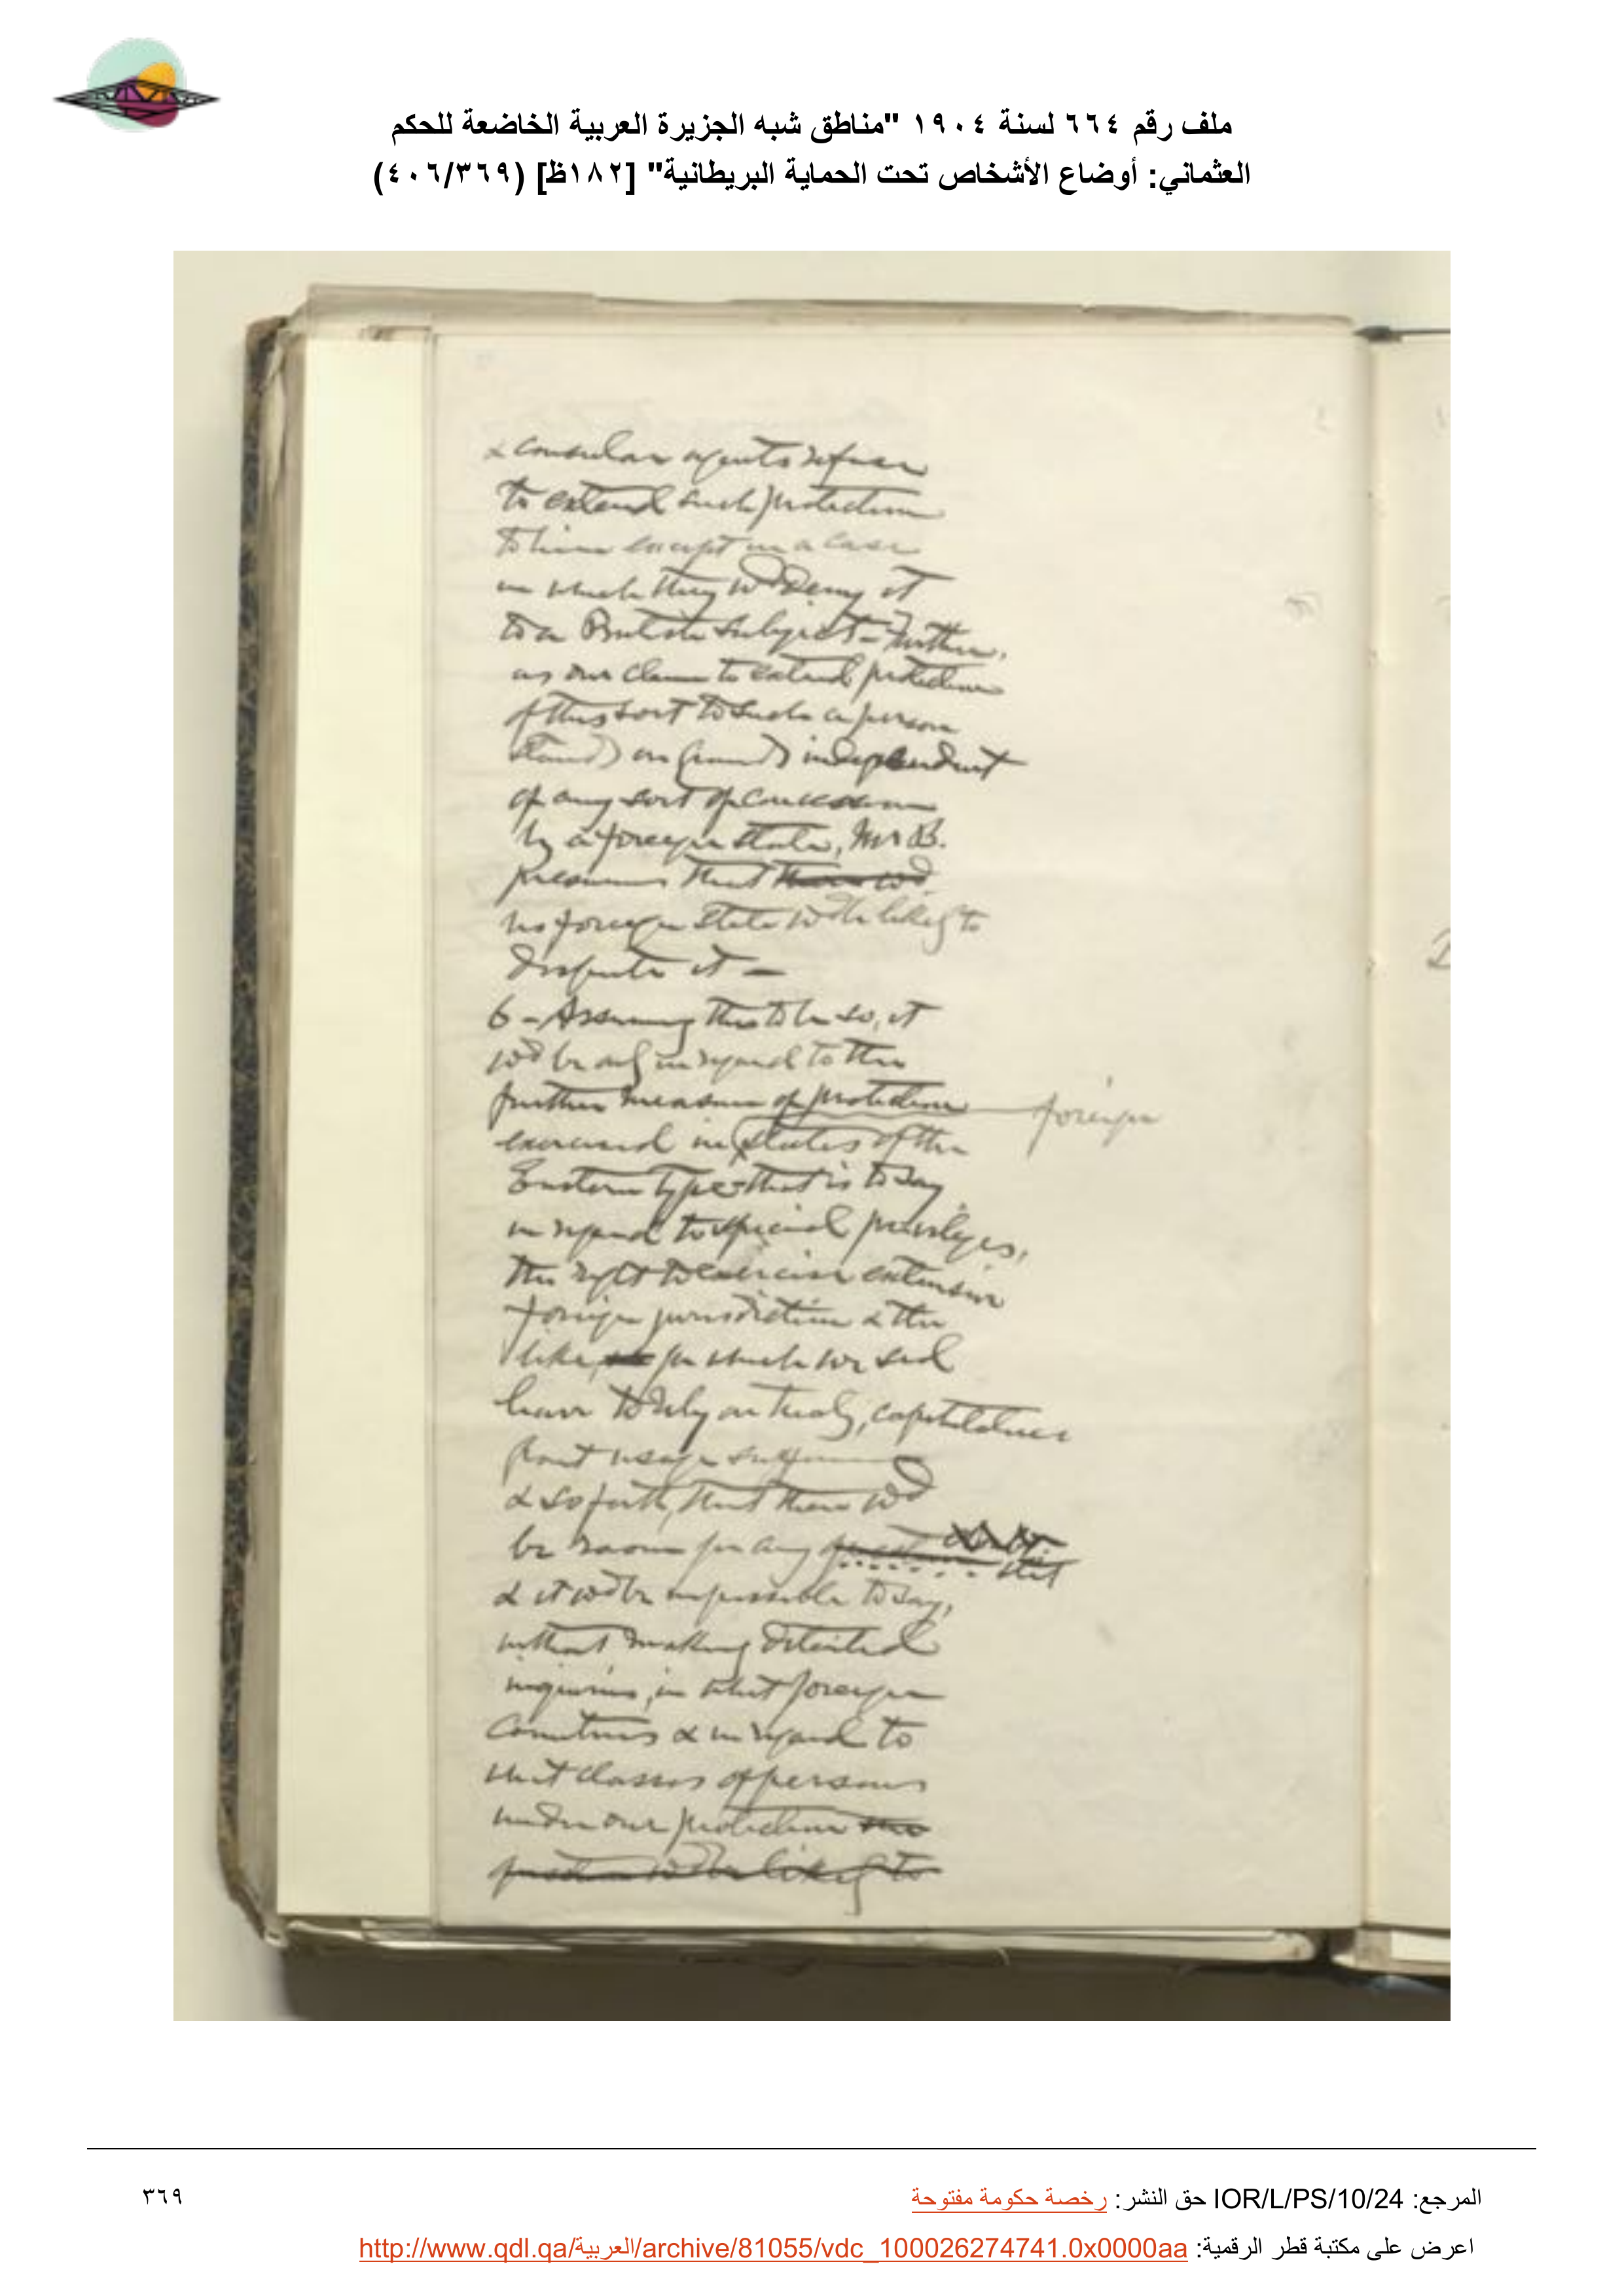 ملف رقم ٦٦٤ لسنة ١٩٠٤ "مناطق شبه الجزيرة العربية الخاضعة للحكم
العثماني: أوضاع الأشخاص تحت الحماية البريطانية" [١٨٢ظ] (٤٠٦/٣٦٩)
& consular agents refuse
to extend such protection
to him except in a case
in which they wd deny it
to a British subject - Further,
as our claim to extend protection
of this sort to such a person
stands on grounds independent
of any sort of concession
by a foreign state, Mr B.
presumes that there wd
no foreign state wd be likely to
dispute it -
6 - Assuming this to be so, it
wd be only in regard to the
further measure of protection
foreign
exercised in states of the
Eastern type - that is to say
in regard to special privileges,
the right to exercise extensive
foreign jurisdiction & the
like, for which we shd
have to rely on treaty, capitulations
grant usage sufferance
& so forth, that there wd
be room for any question doubt
stet
& it wd be impossible to say,
without making detailed
inquiries, in what foreign
countries & in regard to
what classes of persons
under our protection the
question wd be likely to
المرجع: IOR/L/PS/10/24 حق النشر: رخصة حكومة مفتوحة
٣٦٩
اعرض على مكتبة قطر الرقمية: http://www.qdl.qa/العربية/archive/81055/vdc_100026274741.0x0000aa